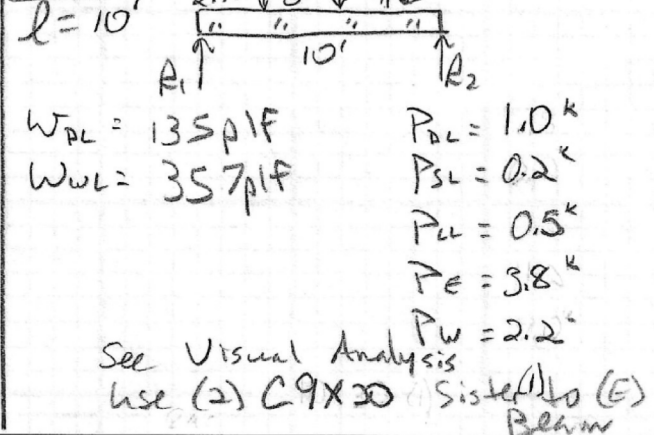 l = 10'
10'
R1 R2
WDL = 135 plf PDL = 1.0 k
WWL = 357 plf PSL = 0.2 k
PLL = 0.5 k
PE = 3.8 k
PW = 2.2 k
See Visual Analysis
Use (2) C9X20 Sister (1) to (E)
Beam